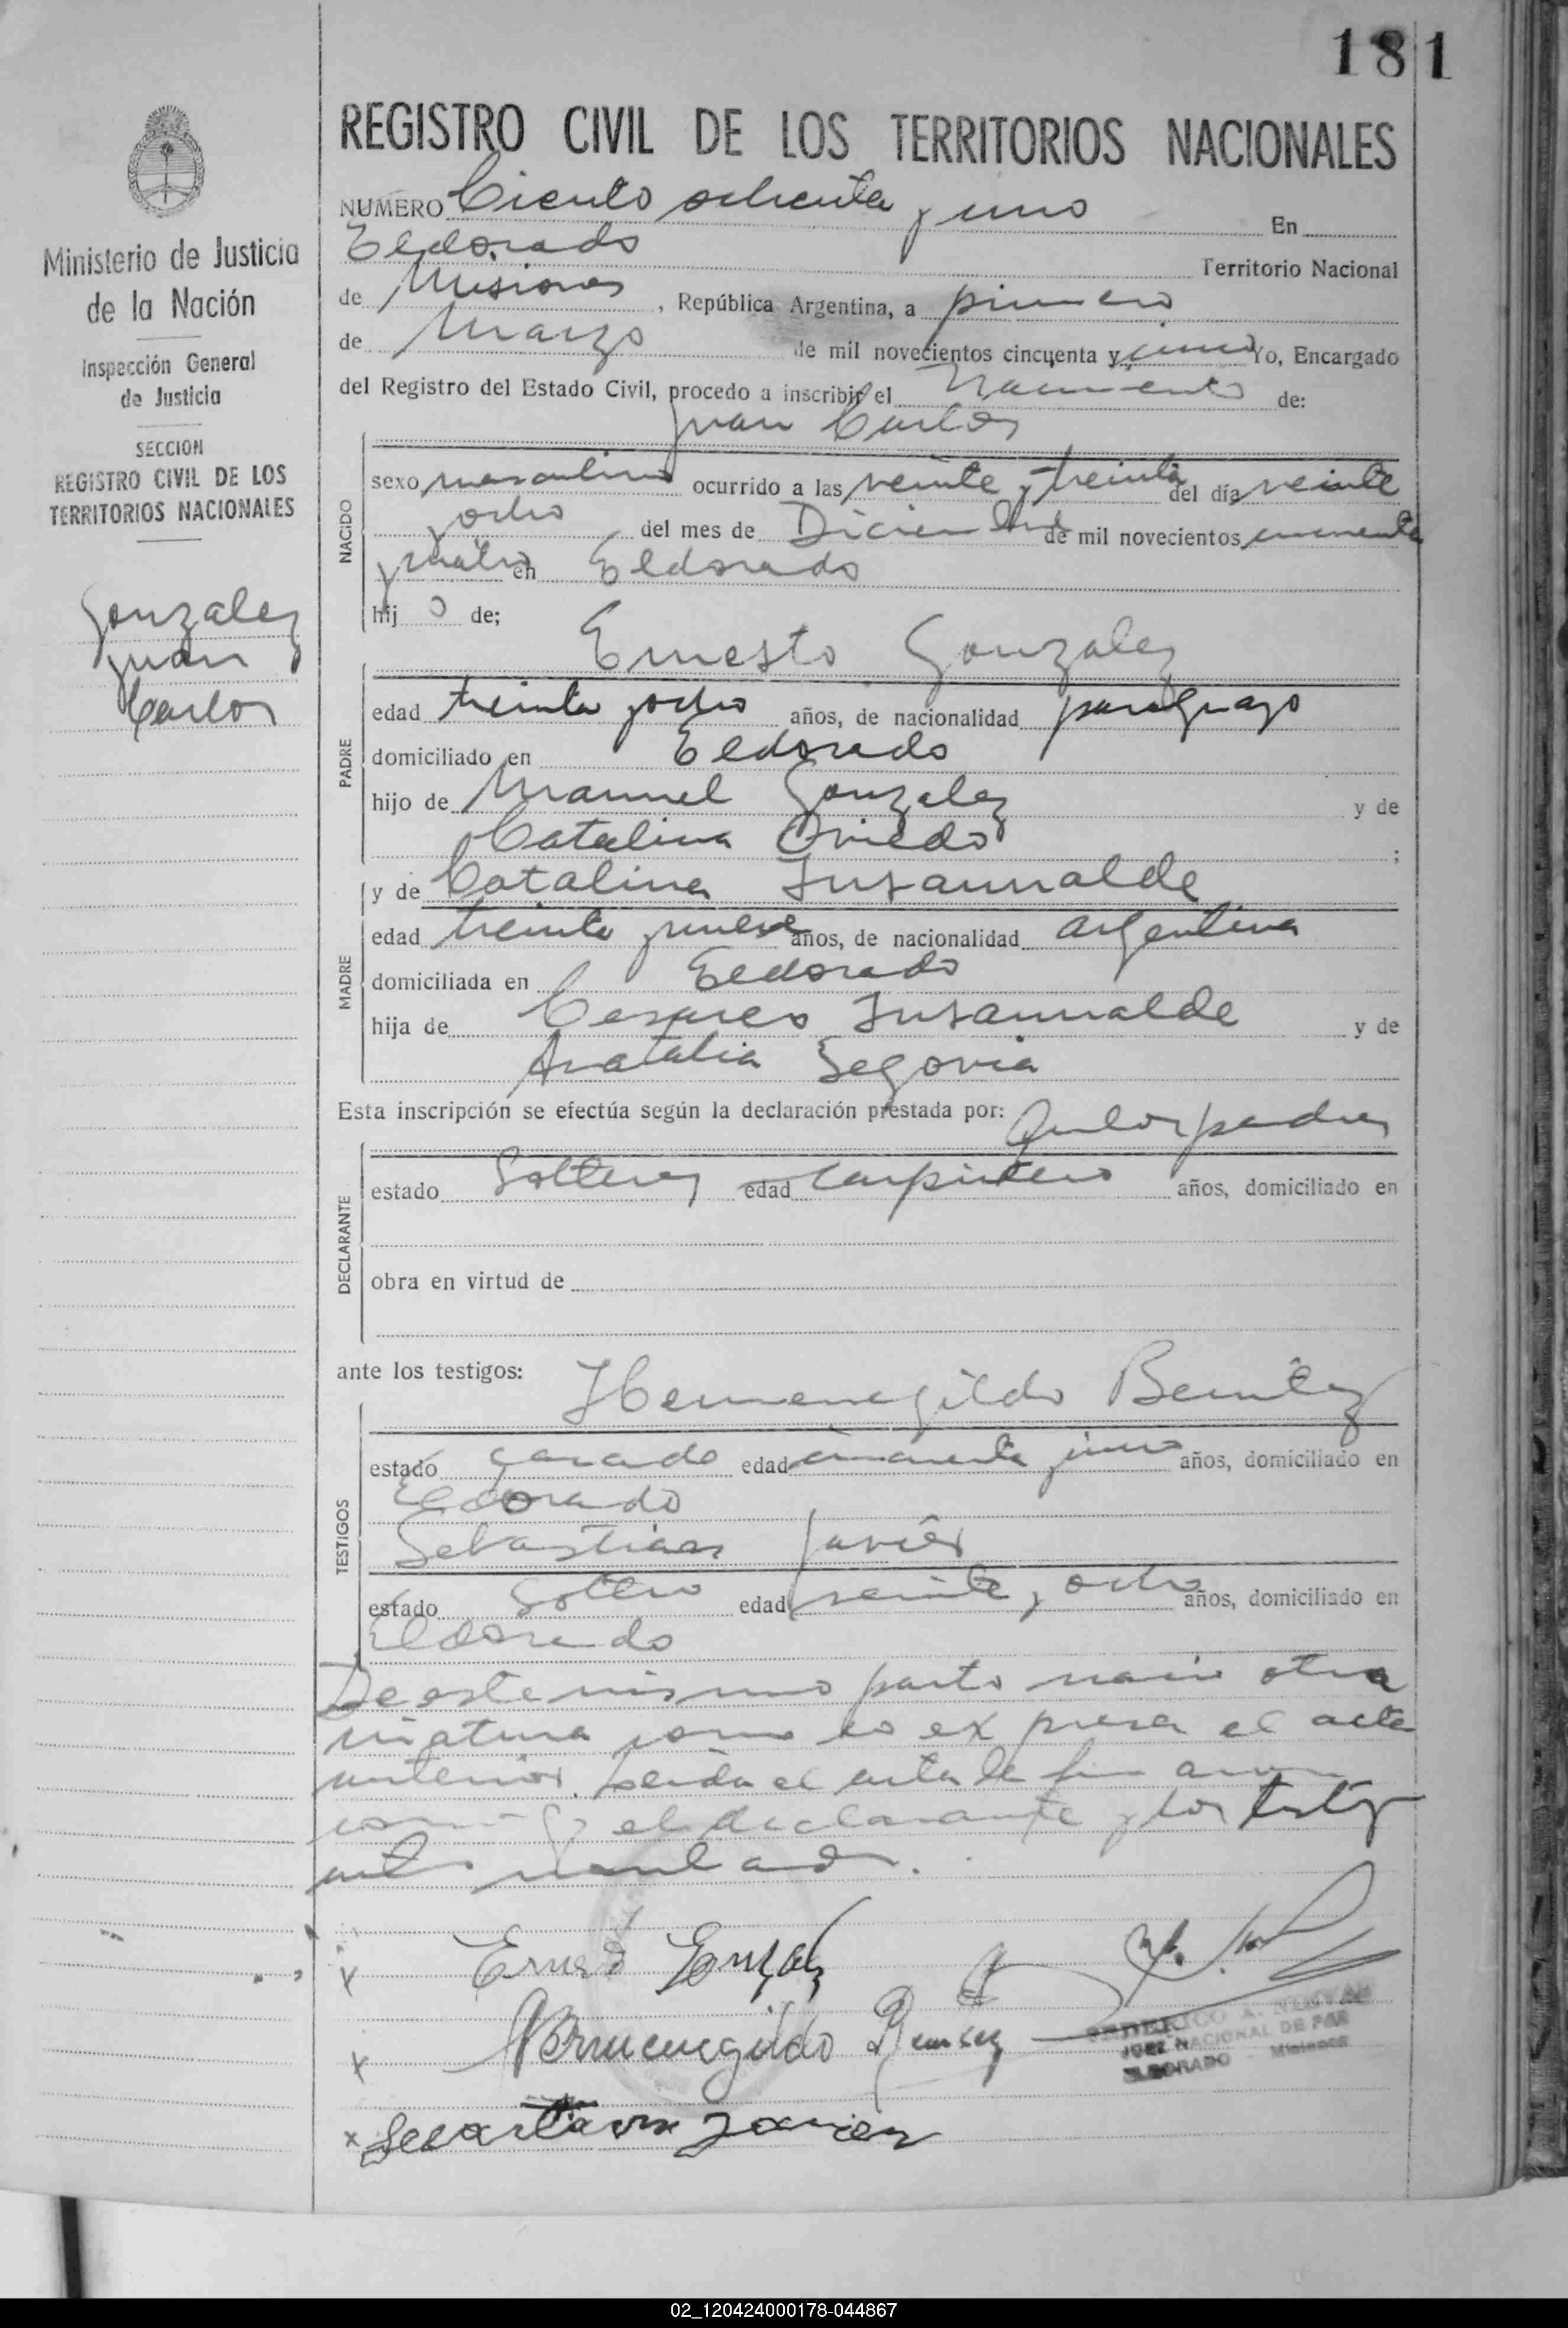 181
REGISTRO CIVIL DE LOS TERRITORIOS NACIONALES
Ministerio de Justicia
de la Nación
Inspección General
de Justicia
SECCION
REGISTRO CIVIL DE LOS
TERRITORIOS NACIONALES
Gonzalez
Juan
Carlos
NUMERO Ciento ochenta y uno En
Eldorado Territorio Nacional
de Misiones, República Argentina, a primero
de Marzo de mil novecientos cincuenta y cinco Yo, Encargado
del Registro del Estado Civil, procedo a inscribir el Nacimiento de:
Juan Carlos
NACIDO
sexo masculino ocurrido a las veinte y treinta del día veinte
y ocho del mes de Diciembre de mil novecientos cincuenta
y cuatro en Eldorado
hijo de;
Ernesto Gonzalez
PADRE
edad treinta y ocho años, de nacionalidad paraguayo
domiciliado en Eldorado
hijo de Manuel Gonzalez y de
Catalina Oviedo ;
y de Catalina Insaurralde
MADRE
edad treinta y nueve años, de nacionalidad argentina
domiciliada en Eldorado
hija de Cesareo Insaurralde y de
Anatalia Segovia
Esta inscripción se efectúa según la declaración prestada por: padres
DECLARANTE
estado Solteros edad carpintero años, domiciliado en
obra en virtud de
ante los testigos: Hermenegildo Benitez
TESTIGOS
estado casado edad años, domiciliado en
Eldorado
Sebastian Javier
estado Soltero edad veinte y ocho años, domiciliado en
Eldorado
De este mismo parto nacio otra
criatura como lo expresa el acta
anterior. Leida el acta la
el declarante y los testigos
Ernesto Gonzalez
Hermenegildo Benitez
Sebastian Javier
FEDERICO A.
JUEZ NACIONAL DE PAZ
ELDORADO - Misiones
02_120424000178-044867